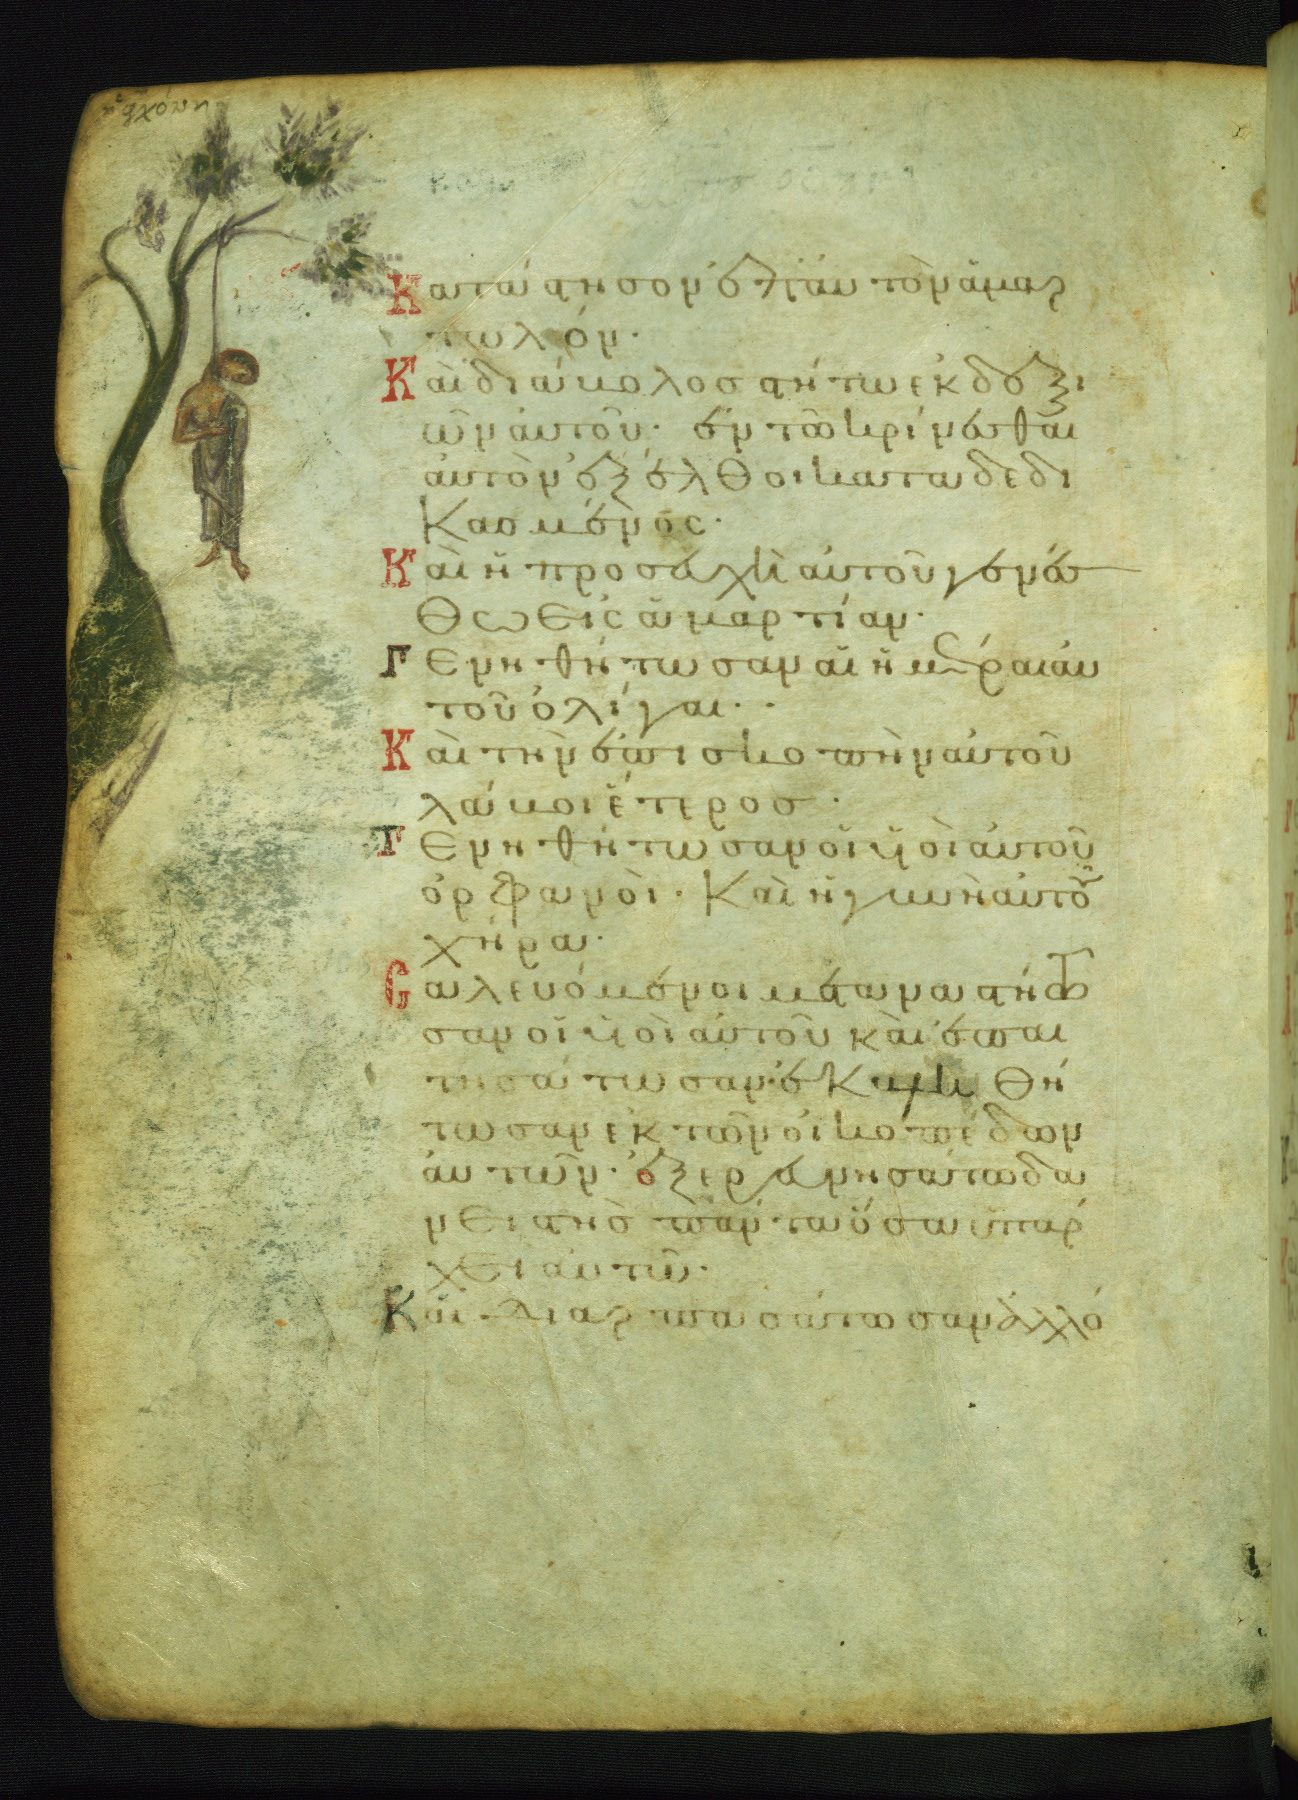 ἀγχόνη
Κατάστησον ἐπ' αὐτὸν ἁμαρ
τωλόν·
Καὶ διάβολος στήτω ἐκ δεξι
ῶν αὐτοῦ· ἐν τῶ κρίνεσθαι
αὐτὸν ἐξέλθοι καταδεδι
κασμένος·
Καὶ ἡ προσευχὴ αὐτοῦ γενέσ
θω εἰς ἁμαρτίαν·
Γενηθήτωσαν αἱ ἡμέραι αὐ
τοῦ ὀλίγαι·
Καὶ τὴν ἐπισκοπὴν αὐτοῦ
λάβοι ἕτερος·
Γενηθήτωσαν οἱ υἱοὶ αὐτοῦ
ὀρφανοὶ· Καὶ ἡ γυνὴ αὐτοῦ
χήρα·
Σαλευόμενοι μεταναστήτω
σαν οἱ υἱοὶ αὐτοῦ καὶ ἐπαι
τησάτωσαν· ἐκβληθή
τωσαν ἐκ τῶν οἰκοπέδων
αὐτῶν· ἐξερευνησάτω δα
νειστὴς πάντα ὅσα ὑπάρ
χει αὐτῶ·
Καὶ διαρπασάτωσαν ἀλλό